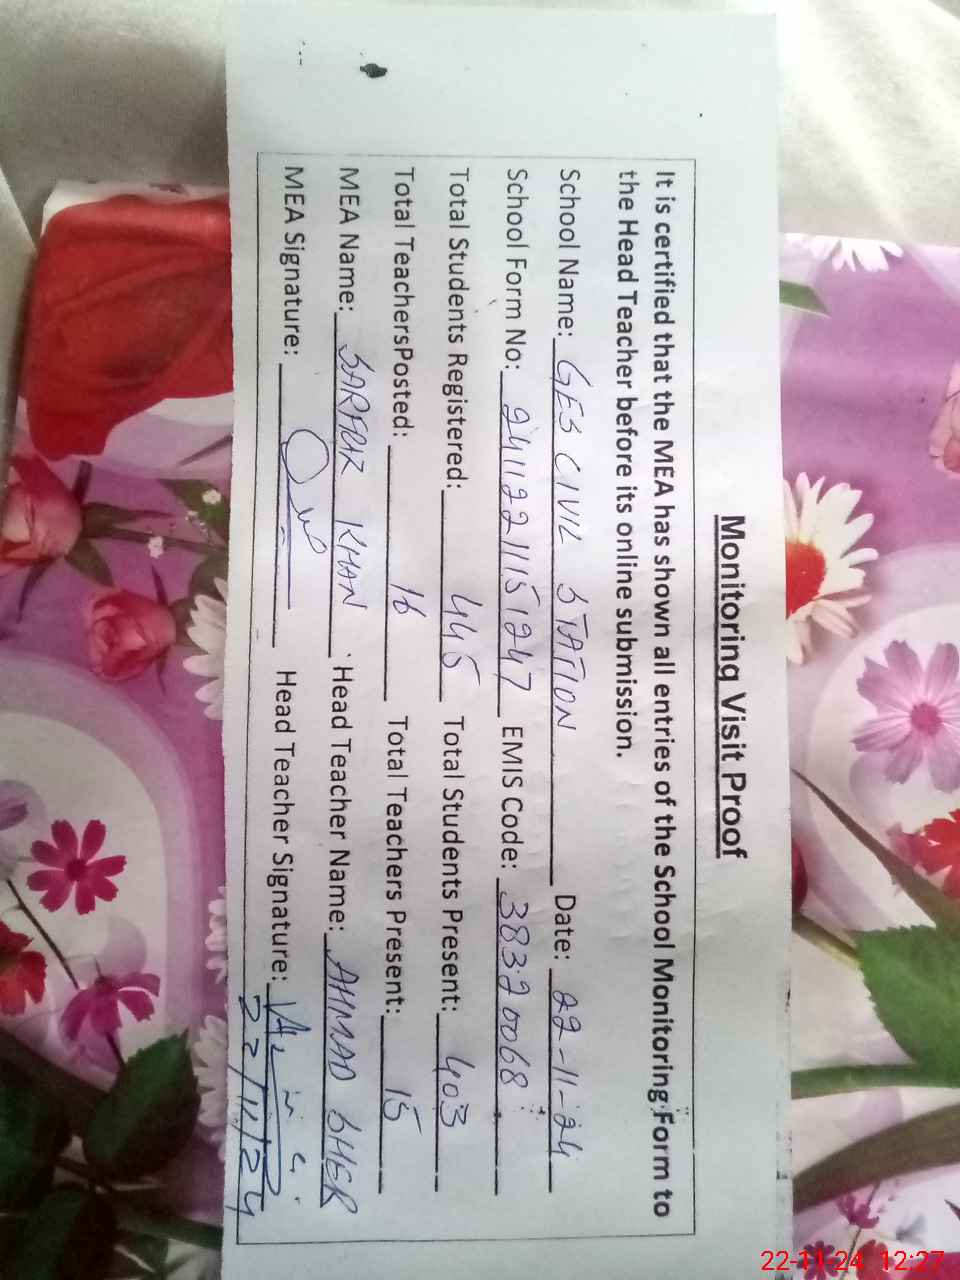 Monitoring Visit Proof
It is certified that the MEA has shown all entries of the School Monitoring Form to
the Head Teacher before its online submission.
School Name: GES CIVIL STATION Date: 22-11-24
School Form No: 24112211151247 EMIS Code: 38320068
Total Students Registered: 445 Total Students Present: 403
Total TeachersPosted: 16 Total Teachers Present: 15
MEA Name: SARFRAZ KHAN Head Teacher Name: AHMAD SHER
MEA Signature: Head Teacher Signature:
22/11/24
22-11-24 12:27